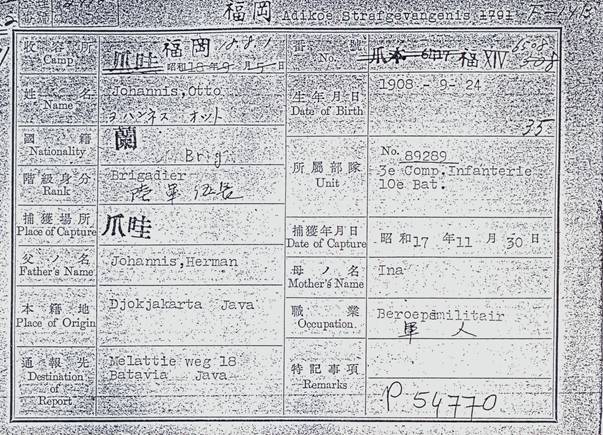 福岡 Adikoe Strafgevangenis
收容所 Camp
爪哇 福岡 18.8.1
昭和18年9月5日
番號 No.
福 XIV
6508
姓名 Name
Johannis,Otto
ヨハンネス オットー
生年月日 Date of Birth
1908 -9- 24
35
國籍 Nationality
蘭
Brig
階級身分 Rank
Brigadier
陸軍伍長
所屬部隊 Unit
No. 89289
3e Comp.Infanterie
10e Bat.
捕獲場所 Place of Capture
爪哇
捕獲年月日 Date of Capture
昭和17年11月30日
父ノ名 Father's Name
Johannis,Herman
母ノ名 Mother's Name
Ina
本籍地 Place of Origin
Djokjakarta Java
職業 Occupation.
Beroepsmilitair
軍人
通報先 Destination of Report
Melattie weg 18
Batavia Java
特記事項 Remarks
P 54770